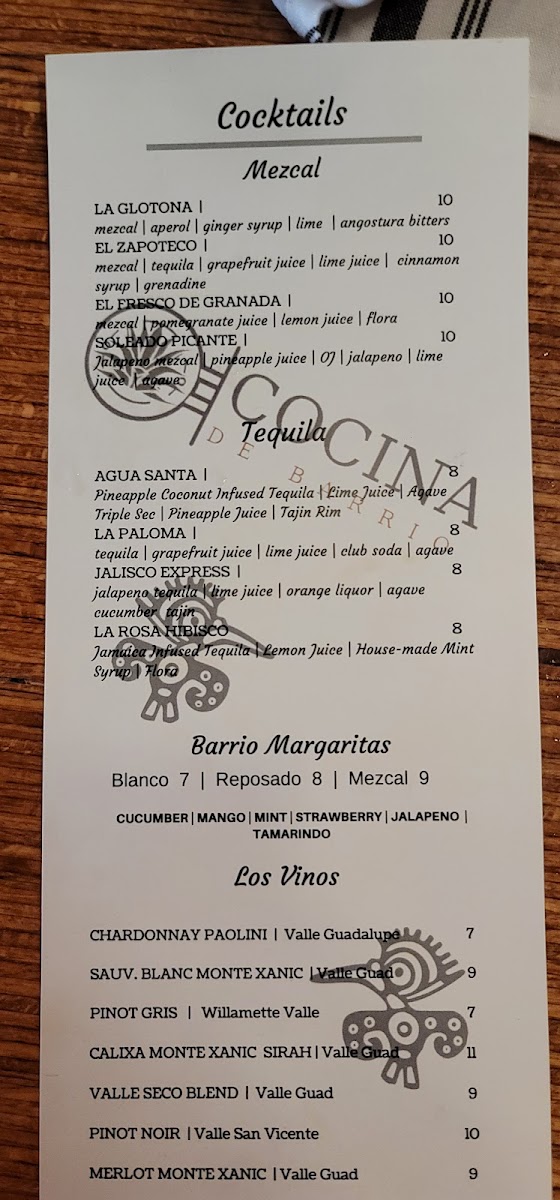 Cocktails
Mezcal
LA GLOTONA | 10
mezcal | aperol | ginger syrup | lime | angostura bitters
EL ZAPOTECO | 10
mezcal | tequila | grapefruit juice | lime juice | cinnamon
syrup | grenadine
EL FRESCO DE GRANADA | 10
mezcal | pomegranate juice | lemon juice | flora
SOLEADO PICANTE | 10
Jalapeno mezcal | pineapple juice | OJ | jalapeno | lime
juice | agave
COCINA
DE BARRIO
Tequila
AGUA SANTA | 8
Pineapple Coconut Infused Tequila | Lime Juice | Agave
Triple Sec | Pineapple Juice | Tajin Rim
LA PALOMA | 8
tequila | grapefruit juice | lime juice | club soda | agave
JALISCO EXPRESS | 8
jalapeno tequila | lime juice | orange liquor | agave
cucumber tajin
LA ROSA HIBISCO 8
Jamaica Infused Tequila | Lemon Juice | House-made Mint
Syrup | Flora
Barrio Margaritas
Blanco 7 | Reposado 8 | Mezcal 9
CUCUMBER | MANGO | MINT | STRAWBERRY | JALAPENO |
TAMARINDO
Los Vinos
CHARDONNAY PAOLINI | Valle Guadalupe 7
SAUV. BLANC MONTE XANIC | Valle Guad 9
PINOT GRIS | Willamette Valle 7
CALIXA MONTE XANIC SIRAH | Valle Guad 11
VALLE SECO BLEND | Valle Guad 9
PINOT NOIR | Valle San Vicente 10
MERLOT MONTE XANIC | Valle Guad 9